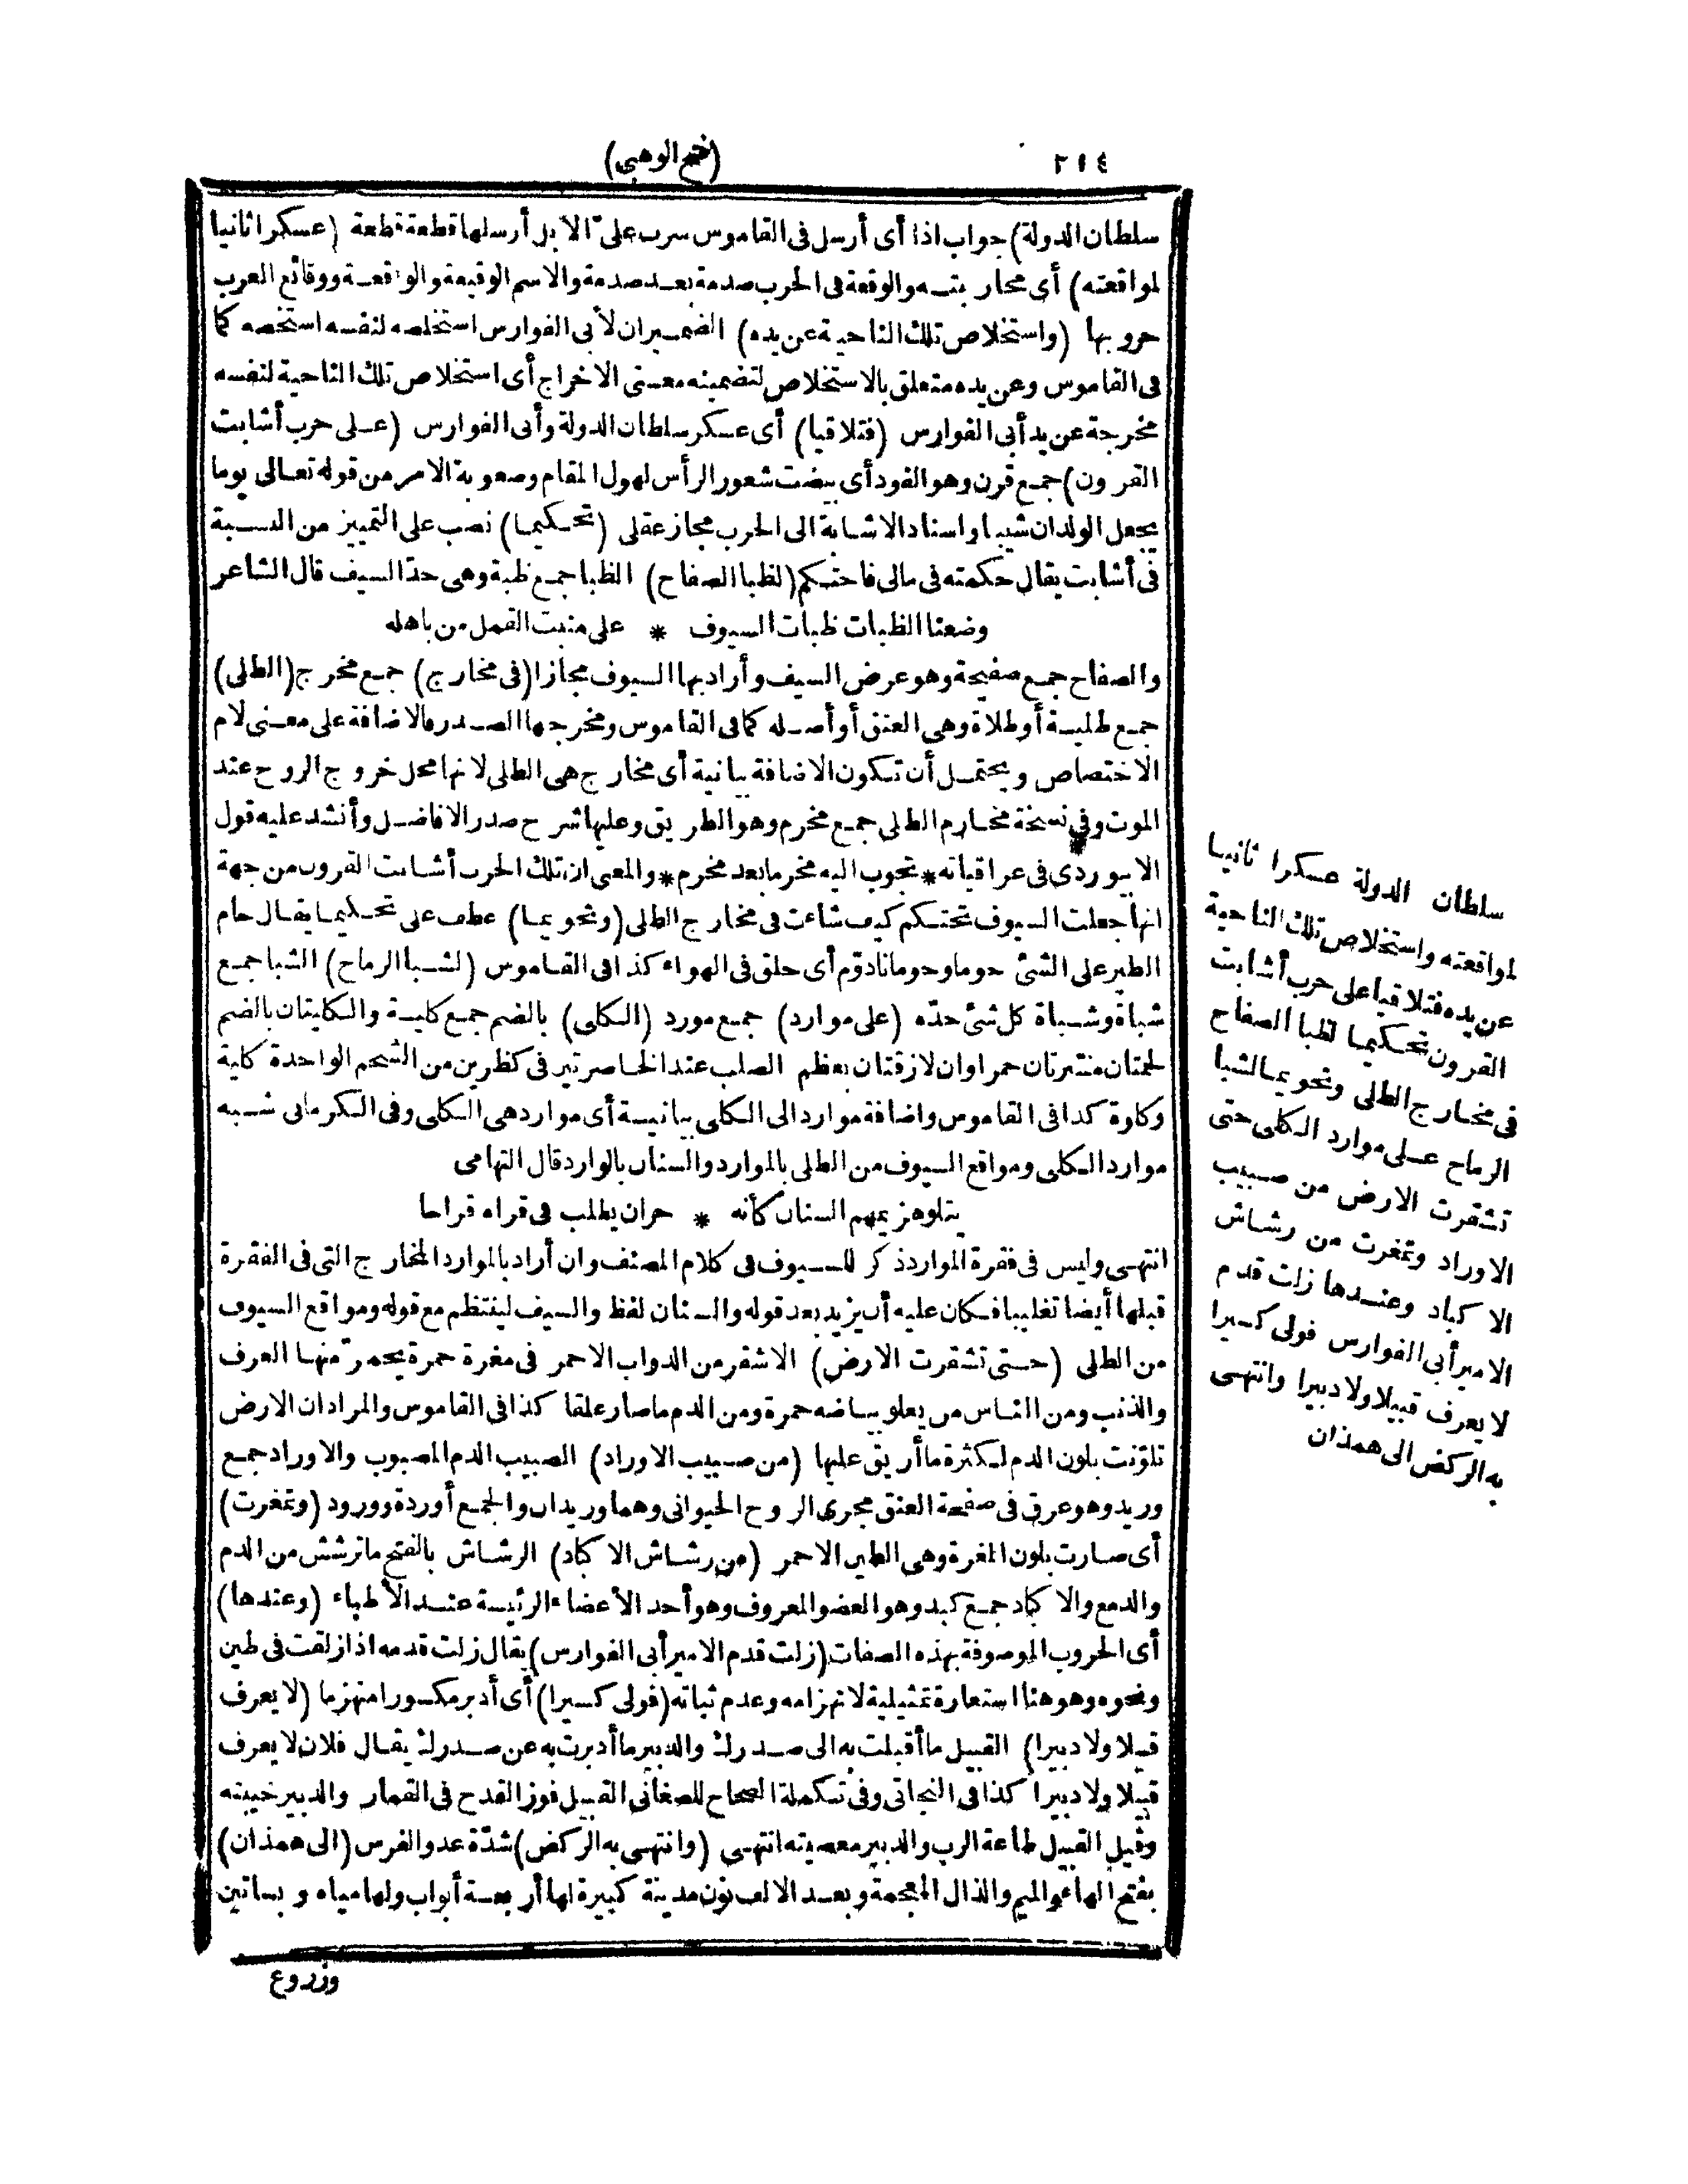 ٢١٤
(فتح الوهبي)
سلطان الدولة) جواب اذا أى أرسل فى القاموس سرب علىّ الابل أرسلها قطعة قطعة (عسكرا ثانيا
لمواقعته) أى محاربتـه والوقعة فى الحرب صدمة بعد صدمة والاسم الوقيعة والواقعة ووقائع العرب
حروبها (واستخلاص تلك الناحية عن يده) الضميران لأبى الفوارس استخلصه لنفسه استخصه كما
فى القاموس وعن يده متعلق بالاستخلاص لتضمينه معنى الاخراج أى استخلاص تلك الناحية لنفسه
مخرجة عن يد أبى الفوارس (فتلاقيا) أى عسكر سلطان الدولة وأبى الفوارس (على حرب أشابت
القرون) جمع قرن وهو الفود أى بيضت شعور الرأس لهول المقام وصعوبة الامر من قوله تعالى يوما
يجعل الولدان شيبا واسناد الاشابة الى الحرب مجاز عقلى (تحكيما) نصب على التمييز من النسبة
فى أشابت يقال حكمته فى مالى فاحتكم (لظبا الصفاح) الظبا جمع ظبة وهى حدّ السيف قال الشاعر
وضعنا الظبات ظبات السيوف * على منبت القمل من باهله
والصفاح جمع صفيحة وهو عرض السيف وأراد بها السيوف مجازا (فى مخارج) جمع مخرج (الطلى)
جمع طلية أو طلاة وهى العنق أو أصله كما فى القاموس ومخرجها الصدر فالاضافة على معنى لام
الاختصاص ويحتمل أن تكون الاضافة بيانية أى مخارج هى الطلى لانها محل خروج الروح عند
الموت وفى نسخة مخارم الطلى جمع مخرم وهو الطريق وعليها شرح صدر الافاضل وأنشد عليه قول
الابيوردى فى عراقياته * تجوب اليه مخرما بعد مخرم * والمعنى ان تلك الحرب أشابت القرون من جهة
انها جعلت السيوف تحتكم كيف شاءت فى مخارج الطلى (وتحويما) عطف على تحكيما يقال حام
الطير على الشئ حوما وحومانا دوّم أى حلق فى الهواء كذا فى القاموس (لشبا الرماح) الشبا جمع
شباة وشباة كل شئ حدّه (على موارد) جمع مورد (الكلى) بالضم جمع كلية والكليتان بالضم
لحمتان منتبرتان حمراوان لازقتان بعظم الصلب عند الخاصرتين فى كظرين من الشحم الواحدة كلية
وكلوة كذا فى القاموس واضافة موارد الى الكلى بيانية أى موارد هى الكلى وفى الكرمانى شبه
موارد الكلى ومواقع السيوف من الطلى بالموارد والسنان بالوارد قال التهامى
يتلو هزيمهم السنان كأنه * حران يطلب فى قراه قراحا
انتهى وليس فى فقرة الموارد ذكر للسيوف فى كلام المصنف وان أراد بالموارد المخارج التى فى الفقرة
قبلها أيضا تغليبا فكان عليه أن يزيد بعد قوله والسنان لفظ والسيف لينتظم مع قوله ومواقع السيوف
من الطلى (حتى تشقرت الارض) الاشقر من الدواب الاحمر فى مغرة حمرة يحمرّ منها العرف
والذنب ومن الناس من يعلو بياضه حمرة ومن الدم ما صار علقا كذا فى القاموس والمراد ان الارض
تلوّنت بلون الدم لكثرة ما أريق عليها (من صبيب الاوراد) الصبيب الدم المصبوب والاوراد جمع
وريد وهو عرق فى صفحة العنق مجرى الروح الحيوانى وهما وريدان والجمع أوردة وورود (وتمغرت)
أى صارت بلون المغرة وهى الطين الاحمر (من رشاش الاكباد) الرشاش بالفتح ما ترشش من الدم
والدمع والاكباد جمع كبد وهو العضو المعروف وهو أحد الأعضاء الرئيسة عند الأطباء (وعندها)
أى الحروب الموصوفة بهذه الصفات (زلت قدم الامير أبى الفوارس) يقال زلت قدمه اذا زلقت فى طين
ونحوه وهو هنا استعارة تمثيلية لانهزامه وعدم ثباته (فولى كسيرا) أى أدبر مكسورا منهزما (لا يعرف
قبيلا ولا دبيرا) القبيل ما أقبلت به الى صدرك والدبير ما أدبرت به عن صدرك يقال فلان لا يعرف
قبيلا ولا دبيرا كذا فى النجاتى وفى تكملة الصحاح للصغانى القبيل فوز القدح فى القمار والدبير خيبته
وقيل القبيل طاعة الرب والدبير معصيته انتهى (وانتهى به الركض) شدّة عدو الفرس (الى همذان)
بفتح الهاء والميم والذال المعجمة وبعد الالف نون مدينة كبيرة لها أربعة أبواب ولها مياه وبساتين
وزروع
سلطان الدولة عسكرا ثانيا
لمواقعته واستخلاص تلك الناحية
عن يده فتلاقيا على حرب أشابت
القرون تحكيما لظبا الصفاح
فى مخارج الطلى وتحويما لشبا
الرماح على موارد الكلى حتى
تشقرت الارض من صبيب
الاوراد وتمغرت من رشاش
الاكباد وعندها زلت قدم
الامير أبى الفوارس فولى كسيرا
لا يعرف قبيلا ولا دبيرا وانتهى
به الركض الى همذان